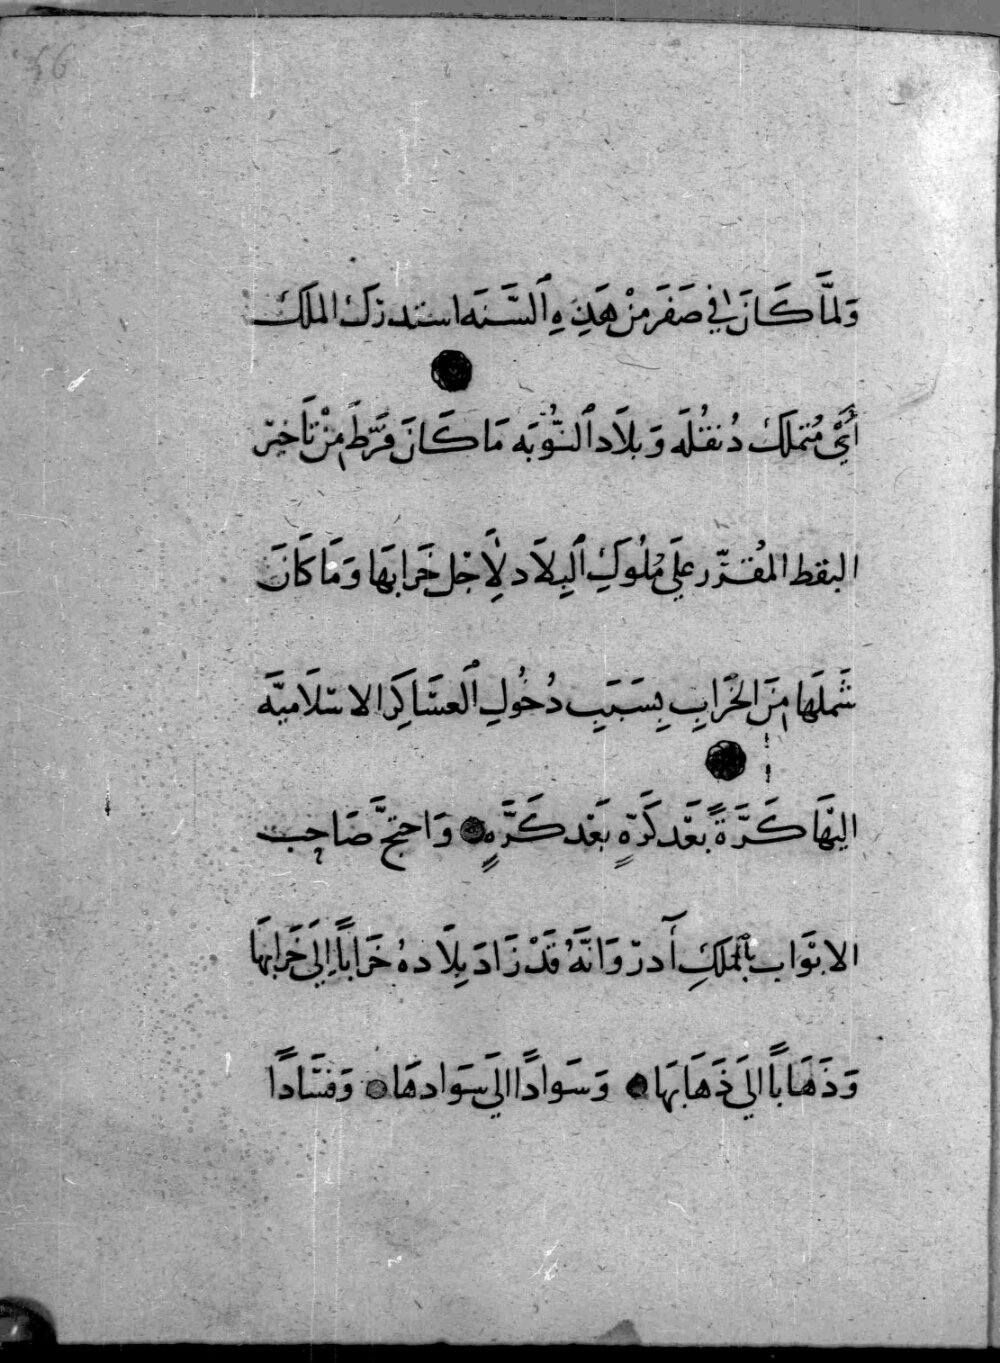 56
وَلمَّا كَانَ في صَفَرَ مِنْ هَذِهِ اَلسَّنَه استدرَك الملَك
أَيْ مُتملك دُنقُلَه وَبلاَد اَلنُّوبَه مَا كَانَ فَرَّطَ مِنْ تَأخِيرْ
البقط المقُرَّر علَى مُلُوكِ اَلبِلاَد لِأَجْل خَرابهَا وَمَا كَانَ
شَملَها مِنَ الخَرابِ بِسَبَبِ دُخُولِ اَلعسَاكِر الاسْلَاميَّه
اليْهَا كَرَّةً بَعْدَ كَرّةٍ بَعْد كَرَّهٍ وَاحتجَّ صَاحِب
الابْوَاب بالملَكِ آدرْ وَانَّهُ قَدْ زَادَ بِلَادهُ خَرَاباً اِلَى خَرابهَا
وَذَهَاباً الَى ذَهَابهَا وَسَوادًا الَى سَوَادهَا وَفسَادًا